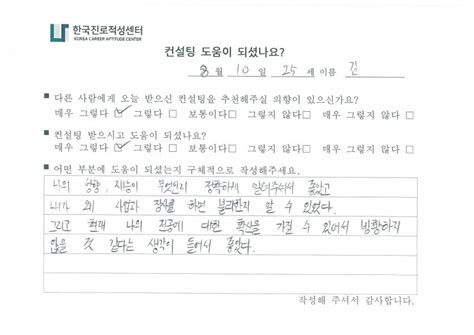 한국진로적성센터
KOREA CAREER APTITUDE CENTER
컨설팅 도움이 되셨나요?
8 월 10 일 25 세 이름 김
■ 다른 사람에게 오늘 받으신 컨설팅을 추천해주실 의향이 있으신가요?
매우 그렇다 □ 그렇다 □ 보통이다 □ 그렇지 않다 □ 매우 그렇지 않다 □
■ 컨설팅 받으시고 도움이 되셨나요?
매우 그렇다 □ 그렇다 □ 보통이다 □ 그렇지 않다 □ 매우 그렇지 않다 □
■ 어떤 부분에 도움이 되셨는지 구체적으로 작성해주세요.
나의 성향, 재능이 무엇인지 정확하게 알려주셔서 좋았고
내가 왜 사업과 장사를 하면 불리한지 알 수 있었다.
그리고 현재 나의 전공에 대한 확신을 가질 수 있어서 방황하지
않을 것 같다는 생각이 들어서 좋았다.
작성해 주셔서 감사합니다.